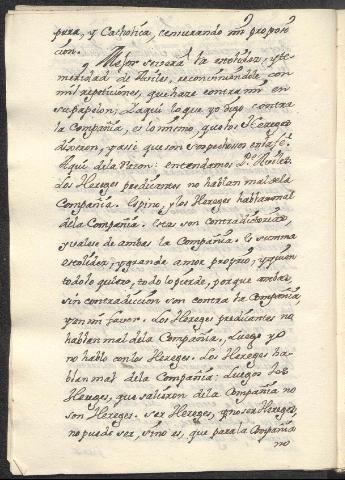 pura, y Catholica, censurando mi proposi
cion.
Mejor se verá la estolidez, y te
meridad de Aviles, reconviniendole con
mil repeticiones, que haze contra mi en
su papelon; Laqui lo que yo digo contra
la Compañia, es lo mismo, que los Hereges
dixeron, y assi que son sospechosos en la fé.
Aqui dela razon: entendamos P.e Aviles.
Los Hereges predicantes no hablan mal dela
Compañia. Espino, y los Hereges hablan mal
dela Compañia. Estas son contradictorias
y valese de ambas la Compañia. Es summa
estolidez, y grande amor proprio; y quien
todo lo quiere, todo lo pierde, porque ambas
sin contradiccion son contra la Compañia,
y en mi favor. Los Hereges predicantes no
hablan mal dela Compañia, Luego yo
no hablo con los Hereges. Los Hereges ha-
blan mal dela Compañia: Luego los
Hereges, que salieron dela Compañia no
son Hereges. Ser Hereges, y no ser Hereges,
no puede ser, sino es, que para la Compañia
no